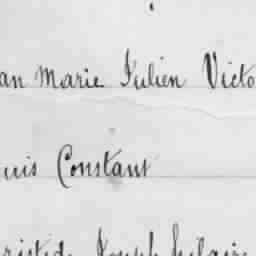 an Marie Julien Victo
uis Constant
ristide Joseph hilaire